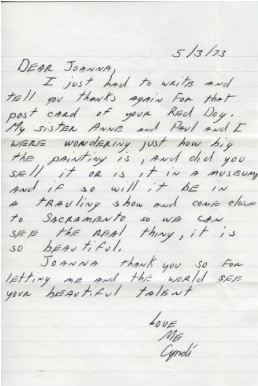 5/3/73
DEAR JOANNA,
I just had to write and
tell you thanks again for that
post card of your Red Dog.
My sister Anne and Paul and I
were wondering just how big
the painting is, and did you
sell it or is it in a museum,
and if so will it be in
a travling show and come close
to Sacramento so we can
see the real thing, it is
so beautiful.
Joanna thank you so for
letting me and the world see
your beautiful talent
Love
Me
Cyndi